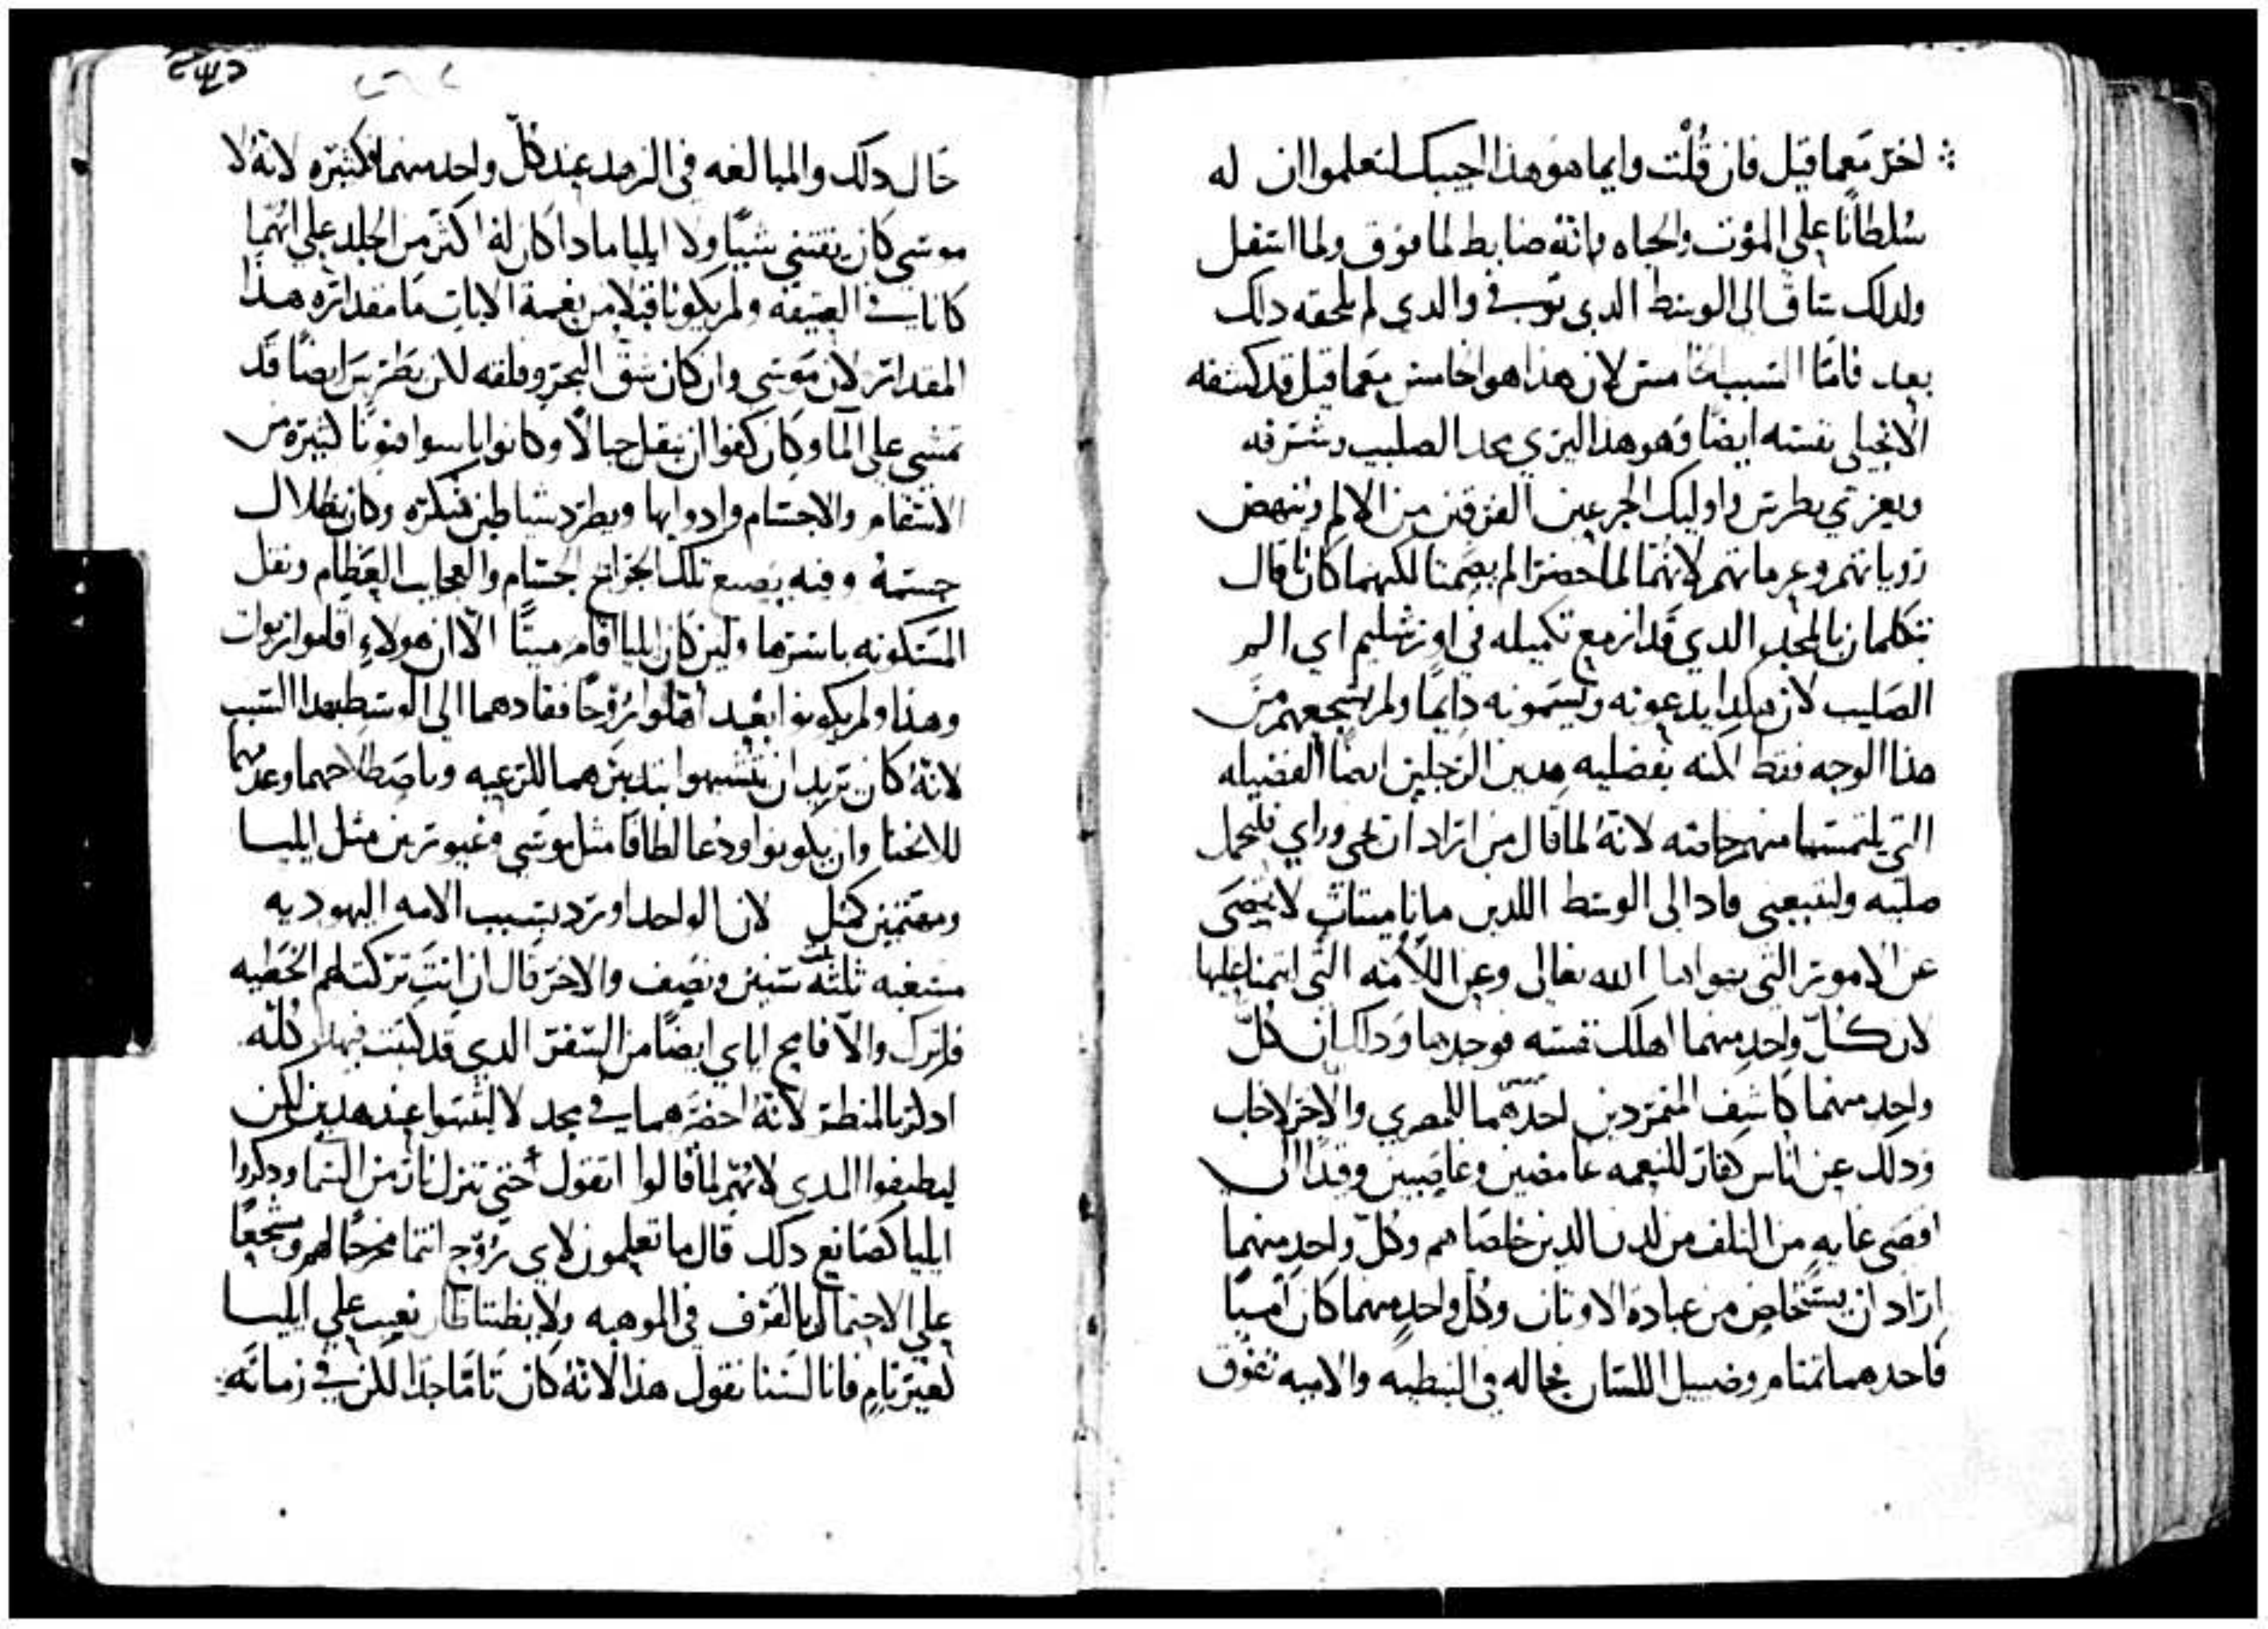 اخر مما قيل فان قُلت وايما هو هذا اجيبك لتعلموا ان له
سُلطانًا على الموت والحياه وانهُ ضابط لما فوق ولما استفل
ولدلك ساق الى الوسط الدي توفي والدي لم يلحقه دلك
بعد فامّا السبب الخامس لان هدا هو الخامس مما قيل قد كشفه
الانجيلي نفسه ايضًا وهو هدا ليري مجد الصليب وشرفه
ويعزي بطرس واوليك الجزعين الفرقين من الالم وينهض
روياتهم وعزماتهم لانهما لما حضرا لم يصمتا لكنهما كانا قال
يتكلمان بالمجد الدي قد ازمع تكميله في اورشليم اي الم
الصليب لان هكدا يدعونه ويسمونه دايمًا ولم يشجعهم من
هذا الوجه فقط لكنه بفضليه هدين الرجلين ايضًا الفضيله
التي يلتمسها منهم خاصته لانهُ لما قال من اراد ان يجي وراي فليحمل
صليبه وليتبعني قاد الى الوسط اللدين ماتا ميتات لا تحصى
عن الامور التي يهواها الله تعالى وعن الأُمه التي ايتمنا عليها
لان كلّ واحد منهما اهلك نفسه فوجدها وداك ان كلّ
واحد منهما كاشف المتمردين احدهما للمصري والاخر لاخاب
ودلك عن اناس كفار للنعمه غامضين وعاصيين وقد ال
اقصى غايه من التلف من لدن الدين خلصاهم وكلّ واحد منهما
اراد ان يستخلص من عبادة الاوتان وكل واحدٍ منهما كان اميًا
فاحدهما تمتام وضييل اللسان بحاله في النبطيه والاميه تفوق
حال دلك والمبالغه في الزهد عند كلّ واحد منهما فكثيره لانهُ لا
موسى كان يقتني شيًا ولا ايليا مادا كان له اكثر من الجلد على انهُما
كانا في العتيقه ولم يكونا قبلا من نعمة الايات ما مقداره هدا
المقدار لان موسى وان كان شق البحر وفلقه لان بطرس ايضًا قد
تمشى على الما وكان كفوا ان ينقل جبالًا وكانوا ياسوا فنونًا كثيرة من
الاسقام والاجسام وادوايها ويطرد شياطين منكره وكان بظلال
جسمهُ وفيه يصنع تلك الجرايح الجسام والعجايب العظام ونقل
المسكونه باسرها ولين كان ايليا اقام ميتًا الّا ان هولاءِ اقاموا ربوات
وهذا ولم يكونوا بعد اقبلوا رُوحًا فقادهما الى الوسط بهدا السبب
لانهُ كان يريد ان يتشبهوا بتدبيرهما للرعيه وباصطلاحهما وعزمهما
للانحنا وان يكونوا ودعا لطافا مثل موسى وغيورين مثل ايليا
ومهتمين كمثل لان الواحد اورد بسبب الامه اليهوديه
مسغبه ثلثة سنين ونصف والاخر قال ان انتَ تركت لهم الخطيه
فلترك والّا فامح اياي ايضًا من السفر الدي قد كتبت فبهدا كُله
ادكر بالمنظر لانهُ احضرهما في مجد لا ليثبتوا عند هدين لكن
ليطيفوا المدى لانهم لما قالوا اتقول حتى تنزل نار من السما ودكروا
ايليا كصانع دلك قال ما تعلمون لاي رُوح انتما مخرجًا لهم ومشجعًا
على الاحتمال بالفرق في الموهبه ولا يظننا ظان نعيب على ايليا
كغير تام فانا لسنا نقول هدا لانهُ كان تامًا جدا لكن في زمانه